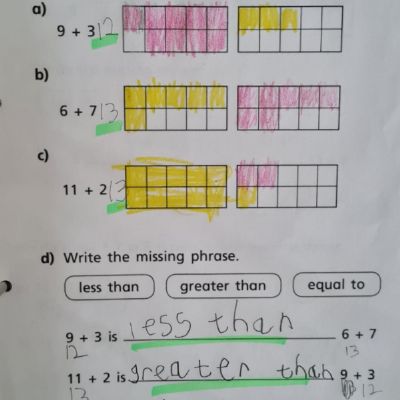 a)
9 + 3 12
b)
6 + 7 13
c)
11 + 2 13
d) Write the missing phrase.
less than greater than equal to
9 + 3 is less than 6 + 7
12 13
11 + 2 is greater than 9 + 3
13 12